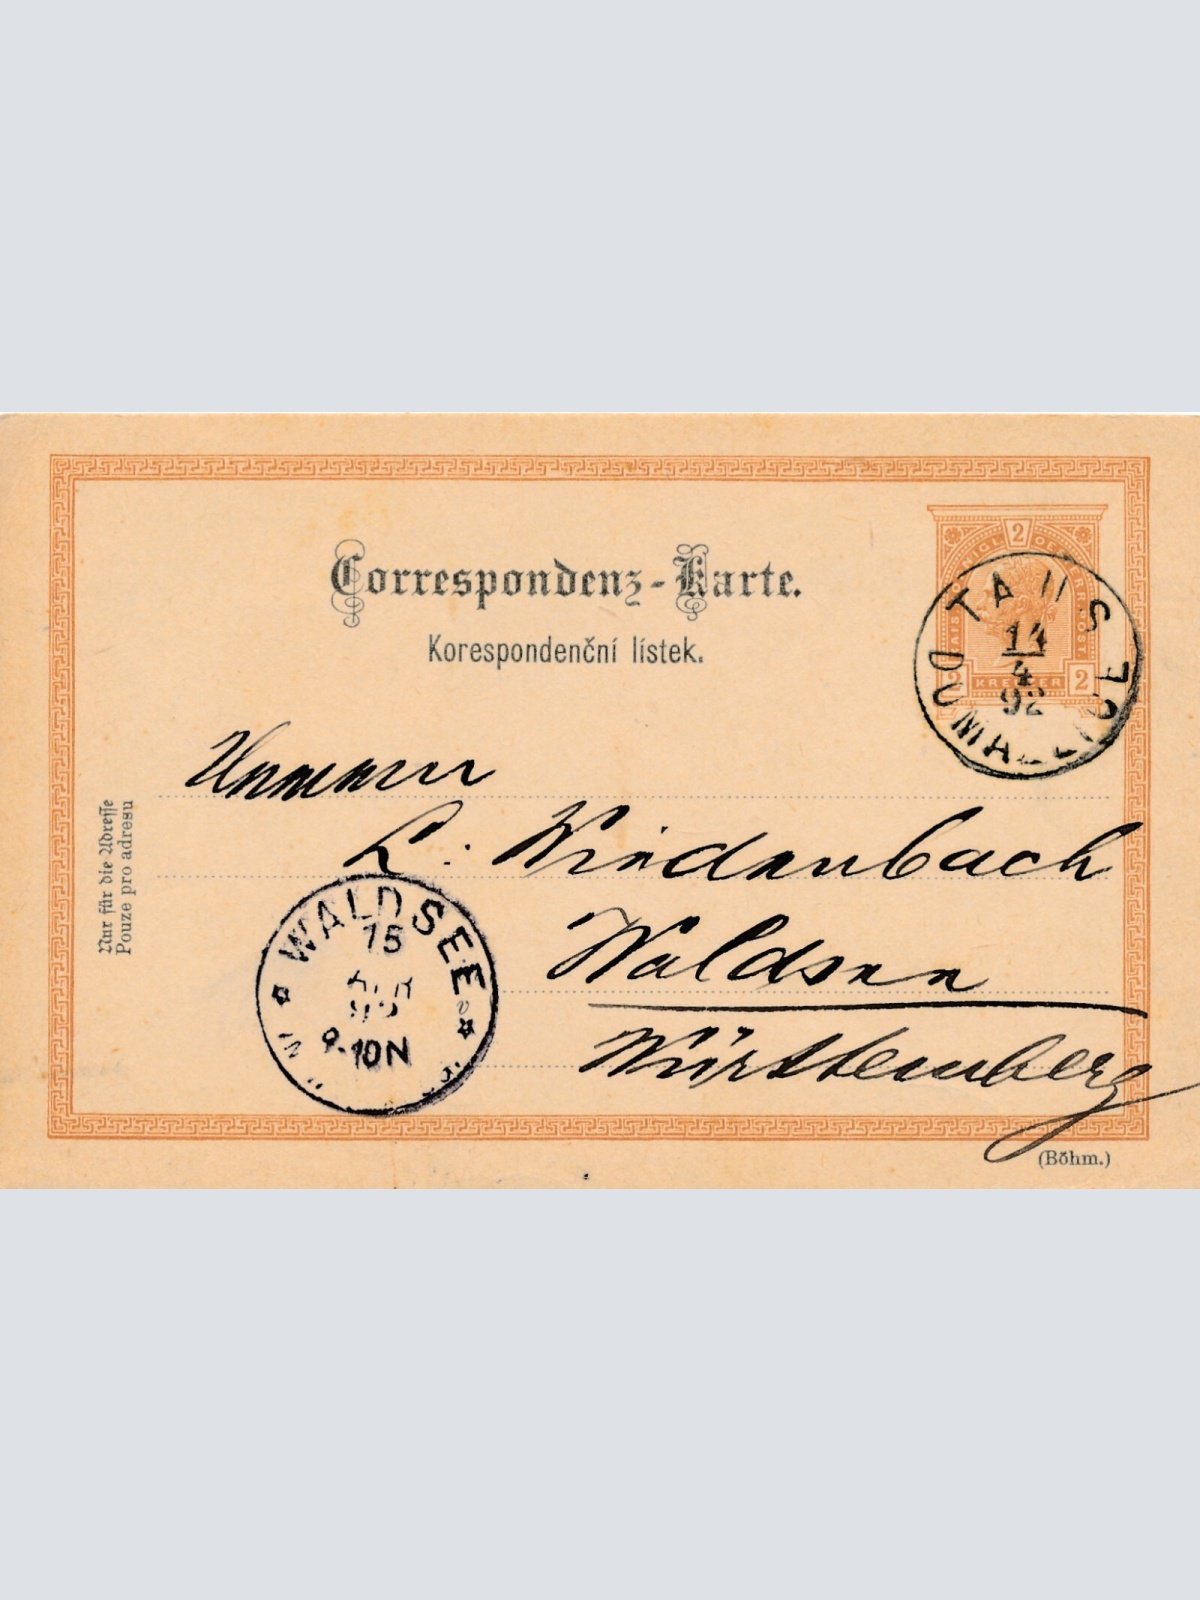 Correspondenz-Karte.
Korespondenční lístek.
2
2 KREUZER 2
TAUS
14
4
92
DOMAŽLICE
L. Windenbach
WALDSEE
15
APR
92
9-10N
Waldsee
Württemberg
Nur für die Adresse
Pouze pro adresu
(Böhm.)